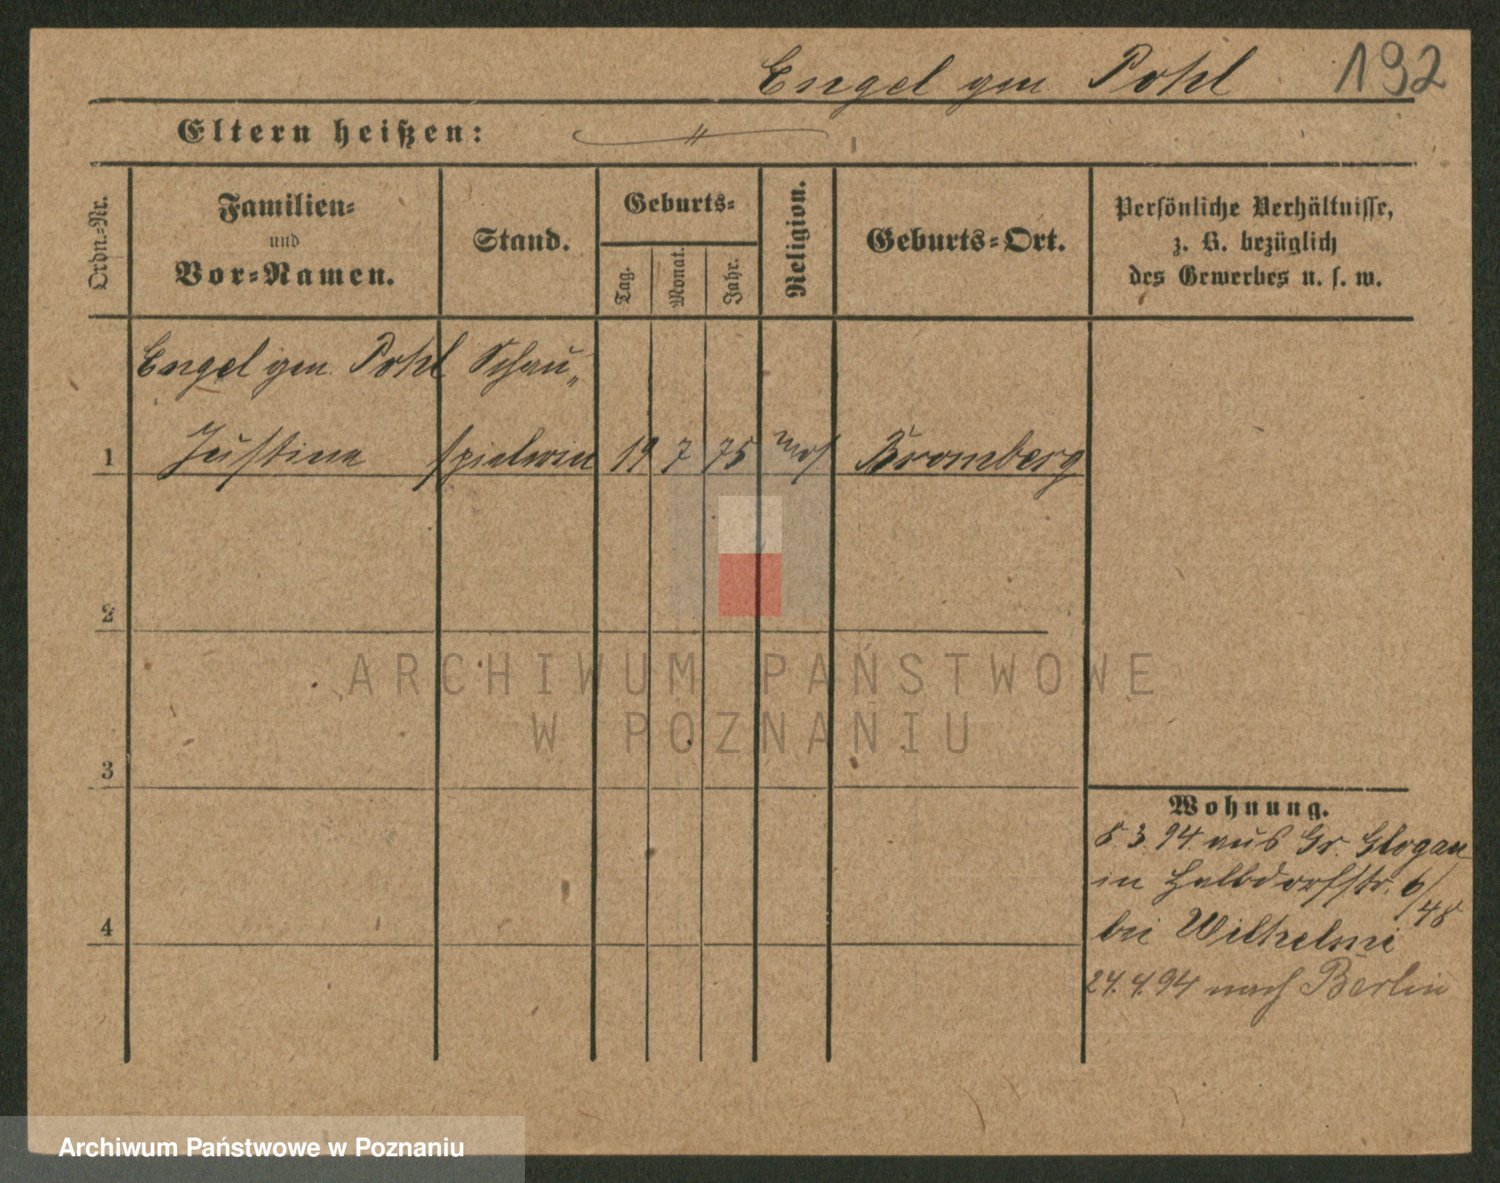 Engel gen Pohl 192
Eltern heißen: "
Ordn.=Nr.
Familien=
und
Vor=Namen.
Stand.
Geburts=
Tag.
Monat.
Jahr.
Religion.
Geburts=Ort.
Persönliche Verhältnisse,
z. B. bezüglich
des Gewerbes u. s. w.
Engel gen. Pohl Schau„
1 Justine spielerin 19 7 75 mos Bromberg
2
3
4
Wohnung.
5 3. 94. aus Gr. Glogau
in Halbdorfstr. 6/
48
bei Wilhelmi
24. 4. 94 nach Berlin
ARCHIWUM PAŃSTWOWE
W POZNANIU
Archiwum Państwowe w Poznaniu